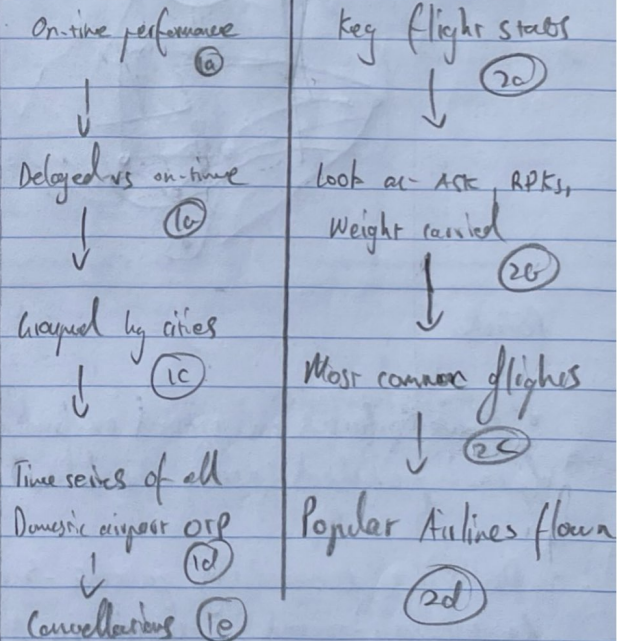 On-time performance
1a
Delayed vs on-time
1b
Grouped by cities
1c
Time series of all
Domestic airport OTP
1d
Cancellations 1e
Key flight stats
2a
Look at ASK, RPKs,
Weight carried
2b
Most common flights
2c
Popular Airlines flown
2d